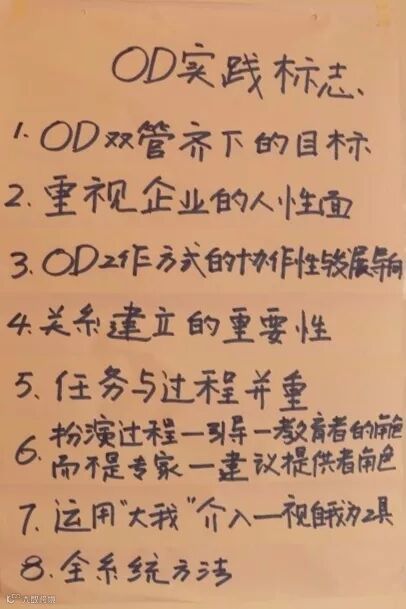 OD实践标志
1. OD双管齐下的目标
2. 重视企业的人性面
3. OD工作方式的协作性与发展导向
4. 关系建立的重要性
5. 任务与过程并重
6. 扮演过程—引导—教育者的角色
而不是专家—建议提供者角色
7. 运用"大我"介入—视自我为工具
8. 全系统方法
大数跨境